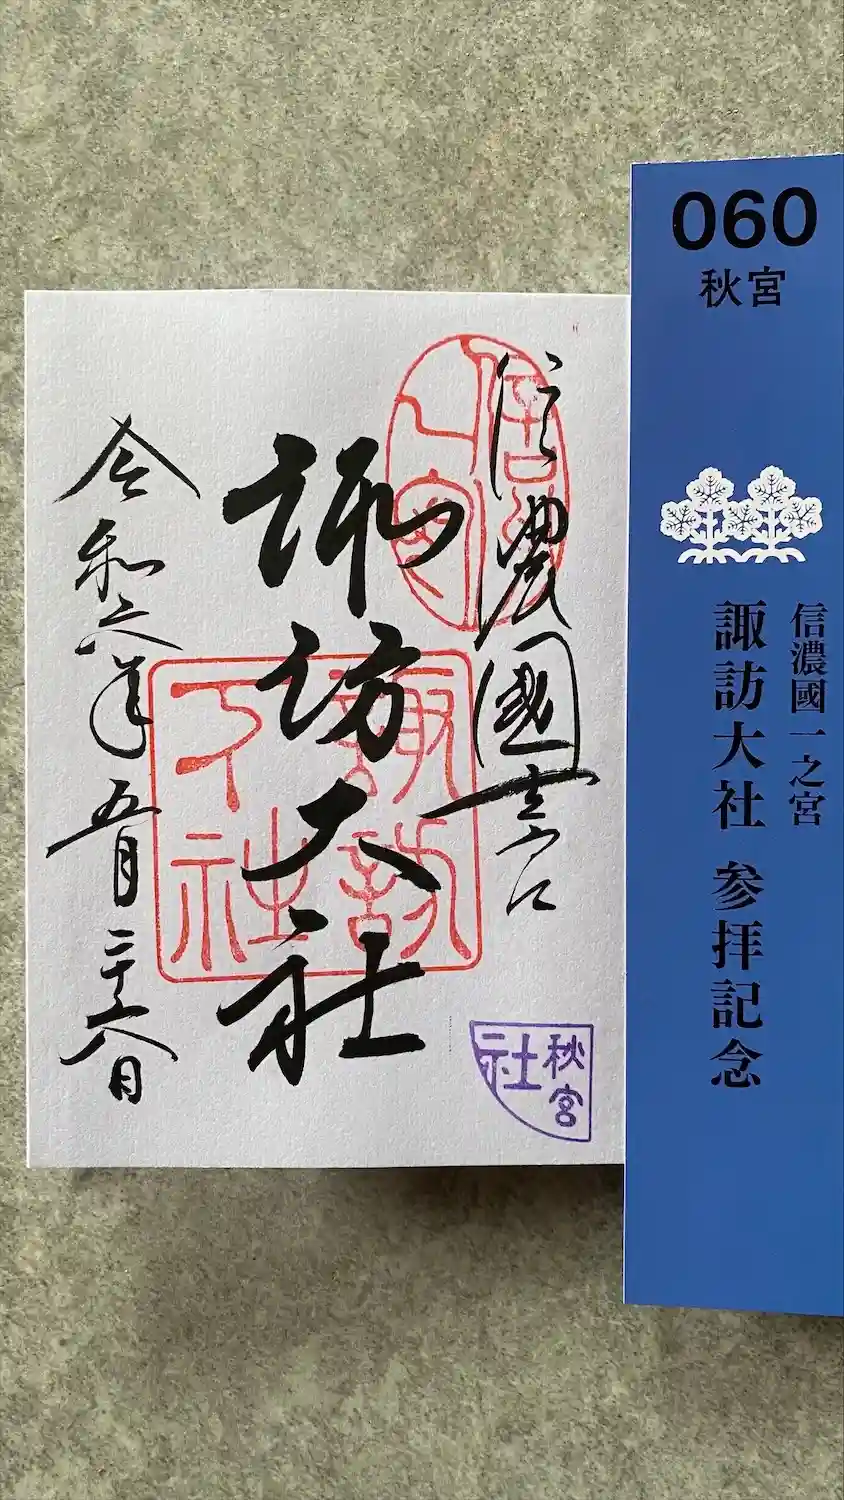 060
秋宮
信濃國一之宮
諏訪大社 参拝記念
信濃國一之宮
諏訪大社
令和六年五月二十六日
諏訪
下社
秋宮
社